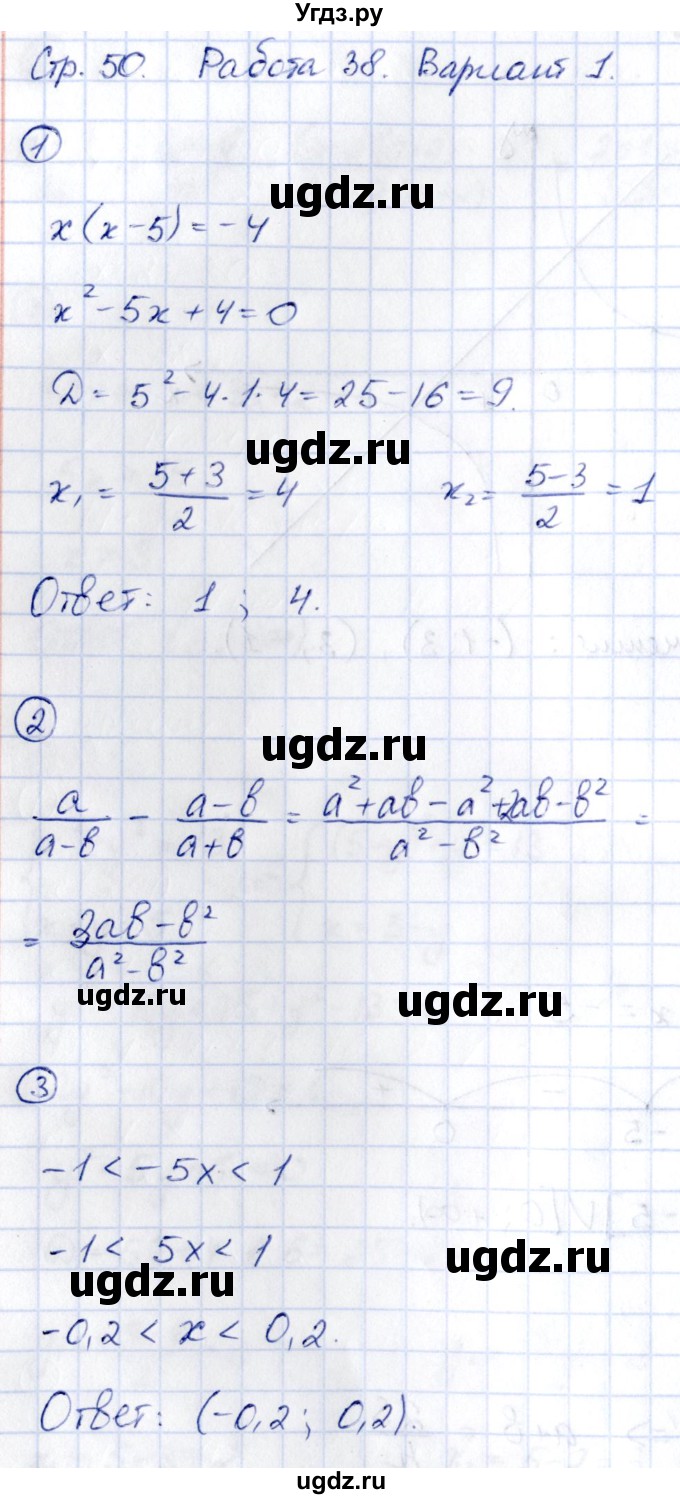 Угдз.ру
Стр. 50. Работа 38. Вариант 1.
1
ugdz.ru
x(x-5)=-4
x²-5x+4=0
D = 5²-4·1·4=25-16=9.
ugdz.ru
x₁ = (5+3)/2 = 4 x₂ = (5-3)/2 = 1
Ответ: 1; 4.
2
ugdz.ru
a/(a-b) - (a-b)/(a+b) = (a²+ab-a²+2ab-b²)/(a²-b²) =
= (3ab-b²)/(a²-b²)
ugdz.ru
ugdz.ru
3
-1<-5x<1
-1<5x<1
ugdz.ru
ugdz.ru
-0,2<x<0,2.
Ответ: (-0,2; 0,2).
ugdz.ru